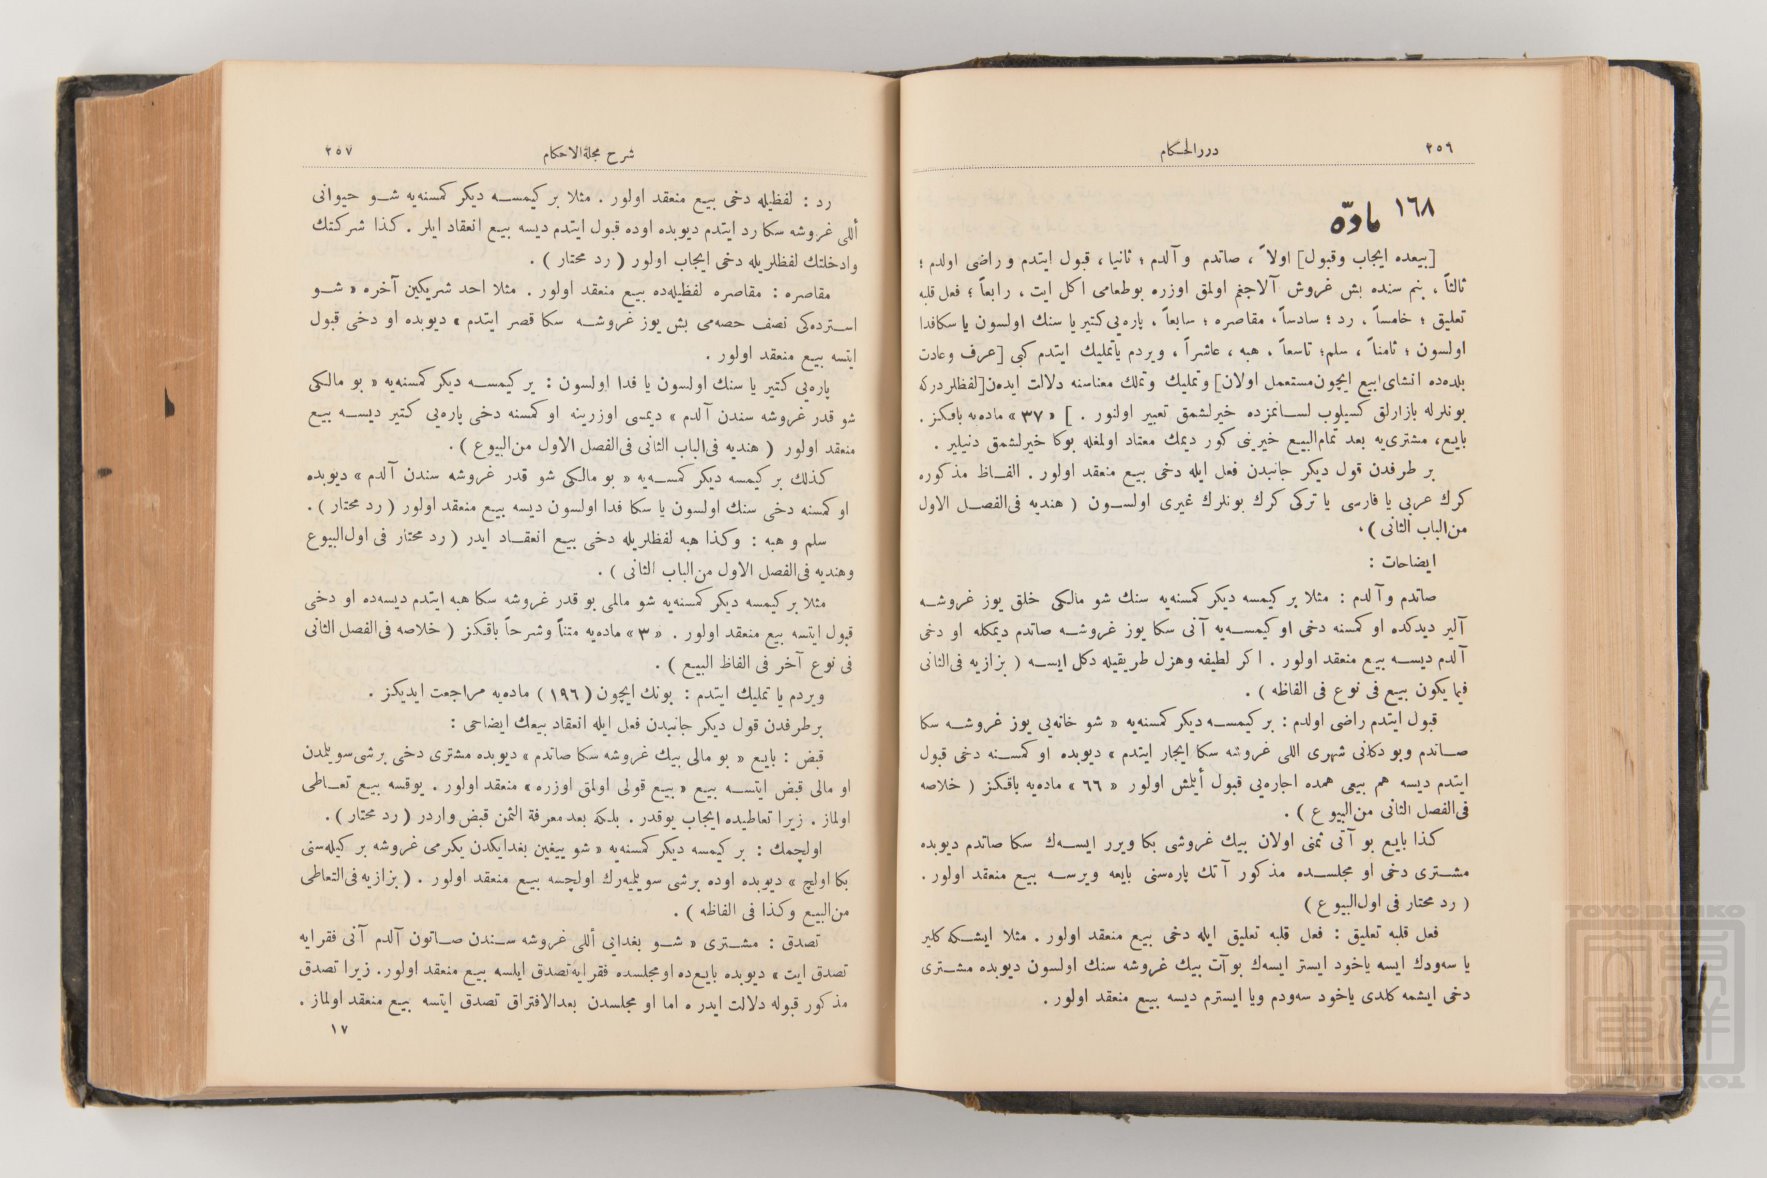 ٢٥٦
دررالحكام
١٦٨ مادّه
[بيعده ايجاب وقبول] اولاً ، صاتدم و آلدم ؛ ثانيا ، قبول ايتدم و راضى اولدم ؛
ثالثاً ، بنم سنده بش غروش آلاجغم اولمق اوزره بوطعامى اكل ايت ، رابعاً ؛ فعل قلبه
تعليق ؛ خامساً ، رد ؛ سادساً ، مقاصره ؛ سابعاً ، پاره‌يى كتير يا سنك اولسون يا سكافدا
اولسون ؛ ثامناً ، سلم ؛ تاسعاً ، هبه ، عاشراً ، ويردم ياتمليك ايتدم كبى [عرف وعادت
بلده‌ده انشاى بيع ايچون مستعمل اولان] وتمليك وتملك معناسنه دلالت ايده‌ن [لفظلردركه
بونلرله بازارلق كسيلوب لسانمزده خيرلشمق تعبير اولنور . ] « ٣٧ » ماده‌يه باقكز .
بايع، مشترى‌يه بعد تمام‌البيع خيرينى كور ديمك معتاد اولمغله بوكا خيرلشمق دنيلير .
بر طرفدن قول ديكر جانبدن فعل ايله دخى بيع منعقد اولور . الفاظ مذكوره
كرك عربى يا فارسى يا تركى كرك بونلرك غيرى اولسون ( هنديه فى‌الفصل الاول
من‌الباب الثانى ) .
ايضاحات :
صاتدم و آلدم : مثلا بر كيمسه ديكر كمسنه‌يه سنك شو مالكى خلق يوز غروشه
آلير ديدكده او كمسنه دخى او كيمسه‌يه آنى سكا يوز غروشه صاتدم ديمكله او دخى
آلدم ديسه بيع منعقد اولور . اكر لطيفه وهزل طريقيله دكل ايسه ( بزازيه فى‌الثانى
فيما يكون بيع فى نوع فى الفاظه ) .
قبول ايتدم راضى اولدم : بر كيمسه ديكر كمسنه‌يه « شو خانه‌يى يوز غروشه سكا
صاتدم وبو دكانى شهرى اللى غروشه سكا ايجار ايتدم » ديوبده او كمسنه دخى قبول
ايتدم ديسه هم بيعى همده اجاره‌يى قبول ايتمش اولور « ٦٦ » ماده‌يه باقكز ( خلاصه
فى‌الفصل الثانى من‌البيوع ) .
كذا بايع بو آتى ثمنى اولان بيك غروشى بكا ويرر ايسه‌ك سكا صاتدم ديوبده
مشترى دخى او مجلسده مذكور آتك پاره‌سنى بايعه ويرسه بيع منعقد اولور .
( رد محتار فى اول‌البيوع )
فعل قلبه تعليق : فعل قلبه تعليق ايله دخى بيع منعقد اولور . مثلا ايشكه كلير
يا سه‌ودك ايسه ياخود ايستر ايسه‌ك بوآت بيك غروشه سنك اولسون ديوبده مشترى
دخى ايشمه كلدى ياخود سه‌ودم ويا ايسترم ديسه بيع منعقد اولور .
شرح مجلةالاحكام
٢٥٧
رد : لفظيله دخى بيع منعقد اولور . مثلا بر كيمسه ديكر كمسنه‌يه شو حيوانى
أللى غروشه سكا رد ايتدم ديوبده اوده قبول ايتدم ديسه بيع انعقاد ايلر . كذا شركتك
وادخلتك لفظلريله دخى ايجاب اولور ( رد محتار ) .
مقاصره : مقاصره لفظيله‌ده بيع منعقد اولور . مثلا احد شريكين آخره « شو
استرده‌كى نصف حصه‌مى بش يوز غروشه سكا قصر ايتدم » ديوبده او دخى قبول
ايتسه بيع منعقد اولور .
پاره‌يى كتير يا سنك اولسون يا فدا اولسون : بر كيمسه ديكر كمسنه‌يه « بو مالكى
شو قدر غروشه سندن آلدم » ديمسى اوزرينه او كمسنه دخى پاره‌يى كتير ديسه بيع
منعقد اولور ( هنديه فى‌الباب الثانى فى‌الفصل الاول من‌البيوع ) .
كذلك بر كيمسه ديكر كمسه‌يه « بو مالكى شو قدر غروشه سندن آلدم » ديوبده
او كمسنه دخى سنك اولسون يا سكا فدا اولسون ديسه بيع منعقد اولور ( رد محتار ) .
سلم و هبه : وكذا هبه لفظلريله دخى بيع انعقاد ايدر ( رد محتار فى اول‌البيوع
وهنديه فى‌الفصل الاول من‌الباب الثانى ) .
مثلا بر كيمسه ديكر كمسنه‌يه شو مالمى بو قدر غروشه سكا هبه ايتدم ديسه‌ده او دخى
قبول ايتسه بيع منعقد اولور . « ٣ » ماده‌يه متناً وشرحاً باقكز ( خلاصه فى‌الفصل الثانى
فى نوع آخر فى الفاظ البيع ) .
ويردم يا تمليك ايتدم : بونك ايچون ( ١٩٦ ) ماده‌يه مراجعت ايديكز .
برطرفدن قول ديكر جانبدن فعل ايله انعقاد بيعك ايضاحى :
قبض : بايع « بو مالى بيك غروشه سكا صاتدم » ديوبده مشترى دخى برشى سويلمدن
او مالى قبض ايتسه بيع « بيع قولى اولمق اوزره » منعقد اولور . يوقسه بيع تعاطى
اولماز . زيرا تعاطيده ايجاب يوقدر . بلكه بعد معرفة الثمن قبض واردر ( رد محتار ) .
اولچمك : بر كيمسه ديكر كمسنه‌يه « شو ييغين بغدايكدن يكرمى غروشه بر كيله‌سنى
بكا اولچ » ديوبده اوده برشى سويلميه‌رك اولچسه بيع منعقد اولور . ( بزازيه فى‌التعاطى
من‌البيع وكذا فى الفاظه ) .
تصدق : مشترى « شو بغدايى أللى غروشه سندن صاتون آلدم آنى فقرايه
تصدق ايت » ديوبده بايع‌ده اومجلسده فقرايه تصدق ايلسه بيع منعقد اولور. زيرا تصدق
مذكور قبوله دلالت ايدر ه اما او مجلسدن بعدالافتراق تصدق ايتسه بيع منعقد اولماز .
١٧
TOYO BUNKO